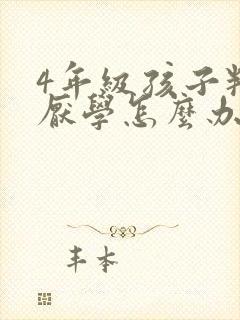 4年級孩子
厭學怎麼办
丰本